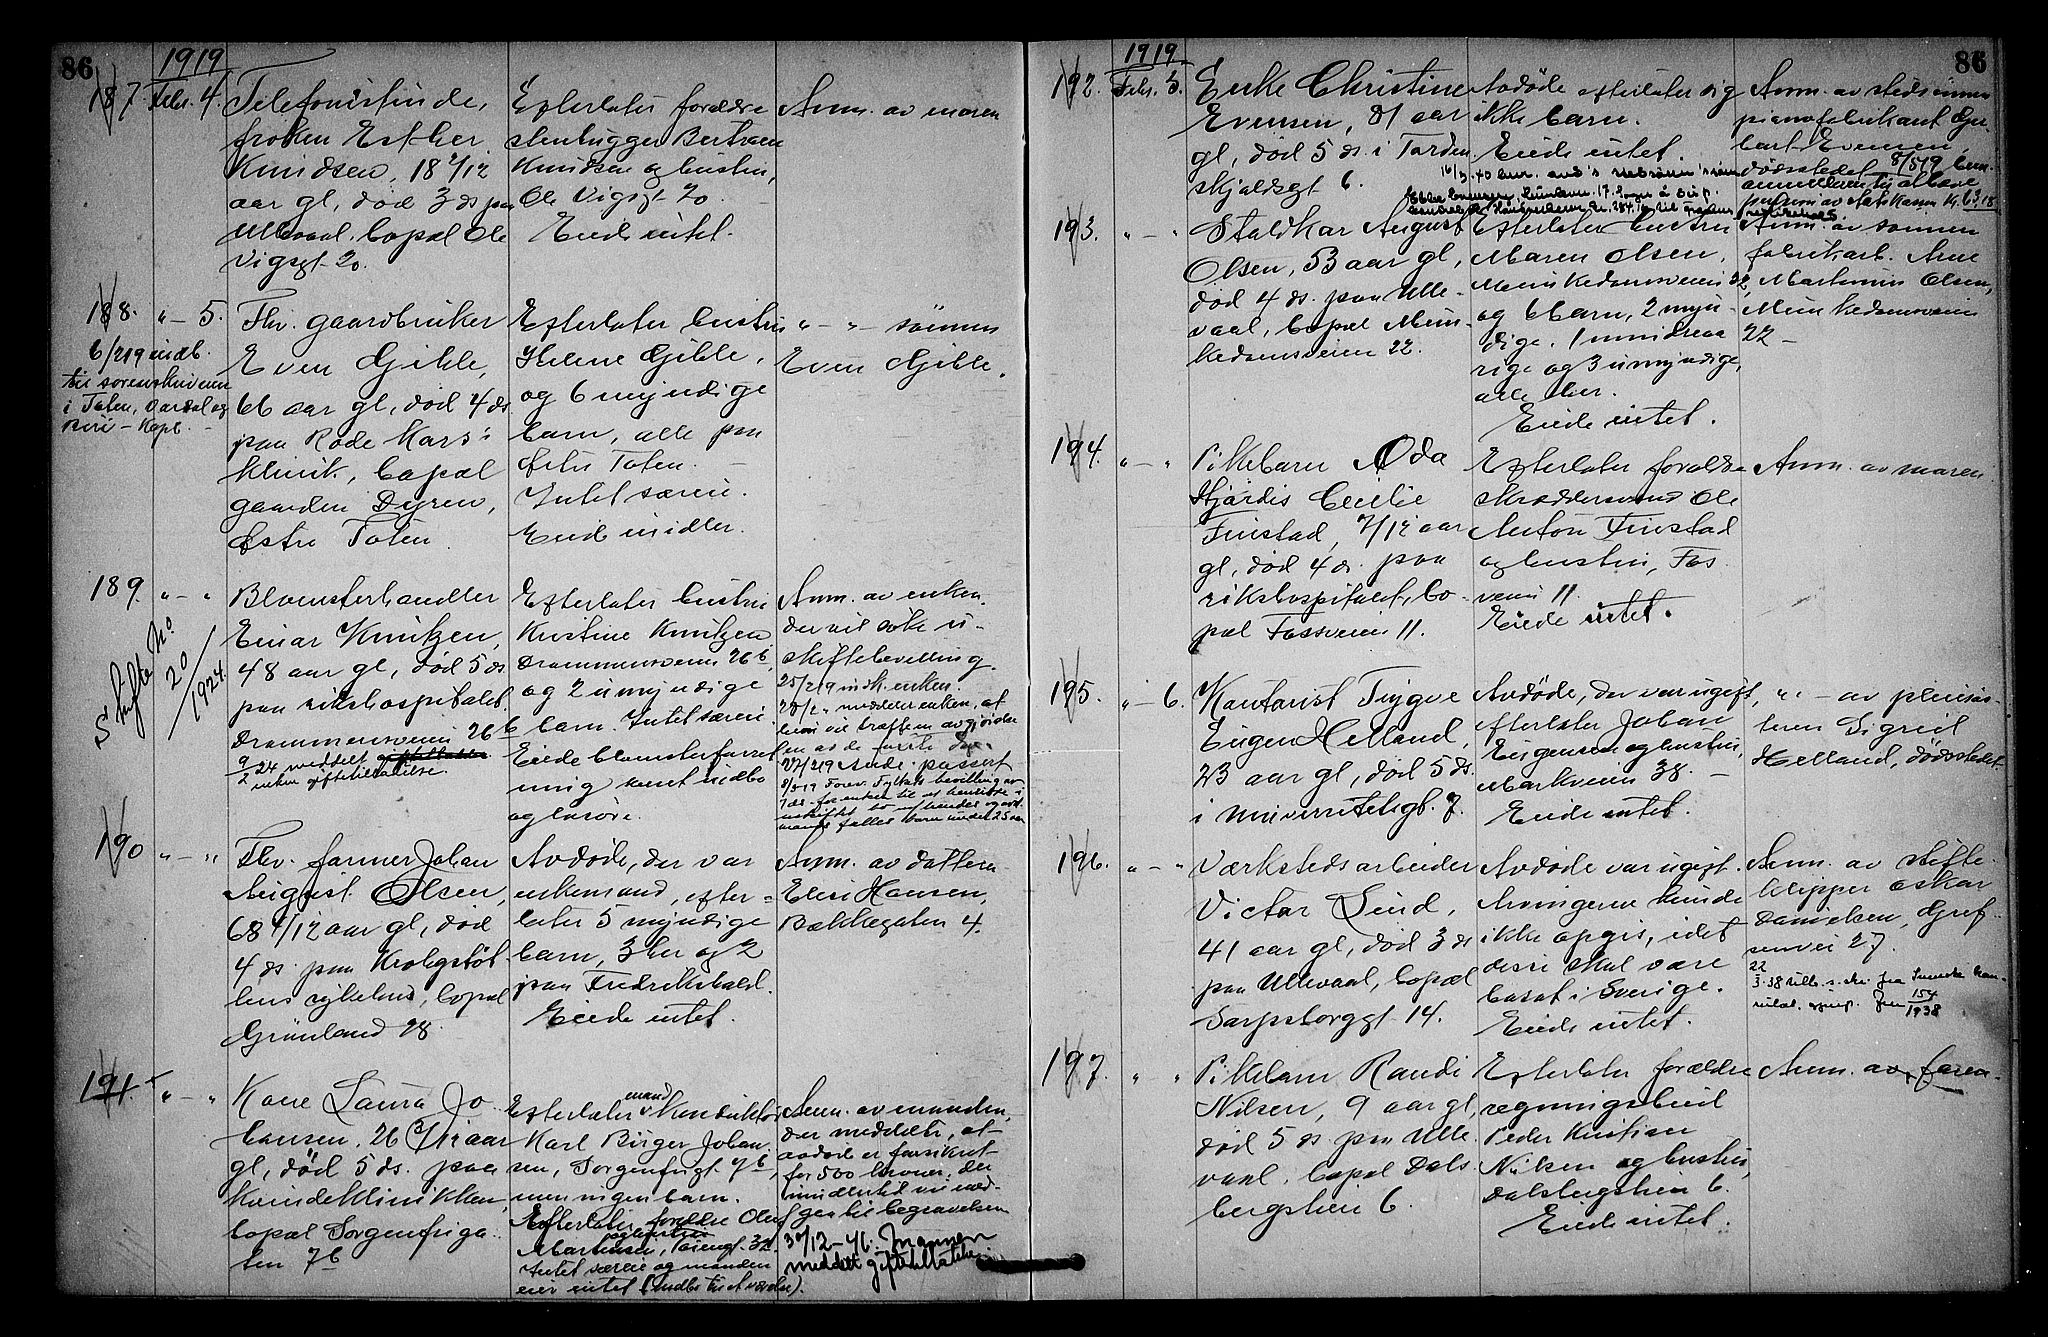 86
1919
187 Febr. 4.
Telefonistinde,
frøken Esther
Knudsen, 18 /12
aar gl, død 3 ds paa
Ullevaal, bopæl Ole
Vigsgt 20.
Efterlater forældre
stenhugger Bertram
Knudsen og hustru,
Ole Vigsgt 20.
Eiede intet.
Anm. av moren
188. " - 5.
6/2 19 indb.
til sorenskriveren
i Toten, Vardal og
Biri - Kopi.
Fhv. gaardbruker
Even Gihle,
66 aar gl, død 4 ds
paa Røde Kors's
klinik, bopæl
gaarden Dyren,
Østre Toten
Efterlater hustru
Helene Gihle,
og 6 myndige
barn, alle paa
Østre Toten.
Intet særeie.
Eiede midler.
" - " - sønnen
Even Gihle.
189. " - "
Skifte No
20/1924.
Blomsterhandler
Einar Knutzen,
48 aar gl, død 5 ds
paa rikshospitalet,
Drammensveien 26 b
9/2 24 meddelt
enken giftetilladelse.
Efterlater hustru
Kristine Knutzen
Drammensveien 26 b,
og 2 umyndige
barn. Intet særeie.
Eiede blomsterforret
ning samt indbo
og løsøre.
Anm. av enken.
der vil søke u-
skiftebevilling.
25/2 19 insk. enken.
28/2 " meddeler enken, at
hun vil træffe avgjørelse
en av de første dage.
190 " - "
Fhv. farmer Johan
August Olsen,
68 /12 aar gl, død
4 ds. paa Krohgstøt-
tens sykehus, bopæl
Grønland 28.
Avdøde, der var
enkemand, efter =
later 5 myndige
barn, 3 her og 2
paa Fredrikshald.
Eiede intet.
Anm. av datteren
Elise Hansen,
Bakkegaten 4.
191. " - "
Kone Laura Jo
hansen, 26 /12 aar
gl, død 5 ds. paa
Kvindeklinikken,
bopæl Sorgenfriga
ten 7 b
Efterlater mand Konduktør
Karl Birger Johan
sen, Sorgenfrigt 7 b,
men ingen barn.
Efterlater forældre Oluf
og hustru
Martinsen,
Intet særeie og manden
eier intet
Anm. av manden,
der meddelte, at
avdøde er forsikret
for 500 kroner, der
imidlertid vil med-
gaa til begravelsen
30/12-46. Mannen
meddelt giftetillatelse.
86
1919.
192. Febr. 5.
Enke Christine
Evensen, 81 aar
gl, død 5 ds. i Torden
skjoldsgt 6.
Avdøde efterlater sig
ikke barn.
Eiede intet.
Anm. av stedsønnen
pianofabrikant Her-
bart Evensen,
dødsstedet
193. " - "
Staldkar August
Olsen, 53 aar gl,
død 4 ds. paa Ulle-
vaal, bopæl Mun-
kedamsveien 22.
Efterlater hustru
Maren Olsen,
Munkedamsveien 22,
og 6 barn, 2 myn-
dige, 1 mindreaa
rige og 3 umyndige,
alle her.
Eiede intet.
Anm. av sønnen
fabrikarb. Arne
Martinius Olsen,
Munkedamsveien
22 -
194. " - "
Pikebarn Oda
Hjørdis Cecilie
Finstad, 7/12 aar
gl, død 4 ds. paa
rikshospitalet, bo-
pæl Fossveien 11.
Efterlater forældre
skræddersvend Ole
Anton Finstad
og hustru, Fos
veien 11.
Eiede intet.
Anm. av moren
195. " - 6.
Kontorist Trygve
Eugen Helland,
23 aar gl, død 5 ds.
i Universitetsgt. 7.
Avdøde, der var ugift,
efterlater Johan
Eugensen og hustru,
Markveien 38. -
Eiede intet.
" - av pleiesøs-
teren Sigrid
Helland, dødsstedet.
196. " - "
Værkstedsarbeider
Victor Lind,
41 aar gl, død 3 ds
paa Ullevaal, bopæl
Sarpsborggt 14.
Avdøde var ugift.
Arvingerne kunde
ikke opgis, idet
disse skal være
bosat i Sverige.
Eiede intet.
Anm. av
klipper Oskar
Danielsen, Gref-
senvei 27.
22
197. " "
Pikebarn Randi
Nilsen, 9 aar gl,
død 5 ds. paa Ulle
vaal, bopæl Dals
bergstien 6.
Efterlater forældre
regningsbud
Peder Kristian
Nilsen og hustru,
Dalsbergstien 6.
Eiede intet.
Anm. av faren.